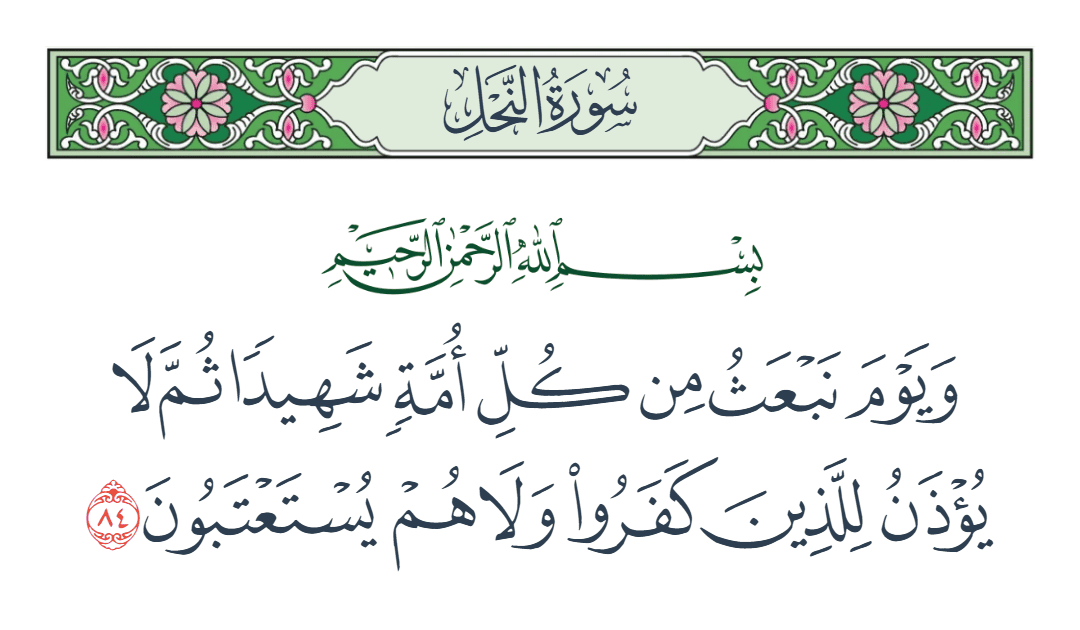 سُورَةُ النَّحْلِ
بِسْمِ ٱللَّهِ ٱلرَّحْمَٰنِ ٱلرَّحِيمِ
وَيَوْمَ نَبْعَثُ مِن كُلِّ أُمَّةٍ شَهِيدًا ثُمَّ لَا
يُؤْذَنُ لِلَّذِينَ كَفَرُوا۟ وَلَا هُمْ يُسْتَعْتَبُونَ ٨٤